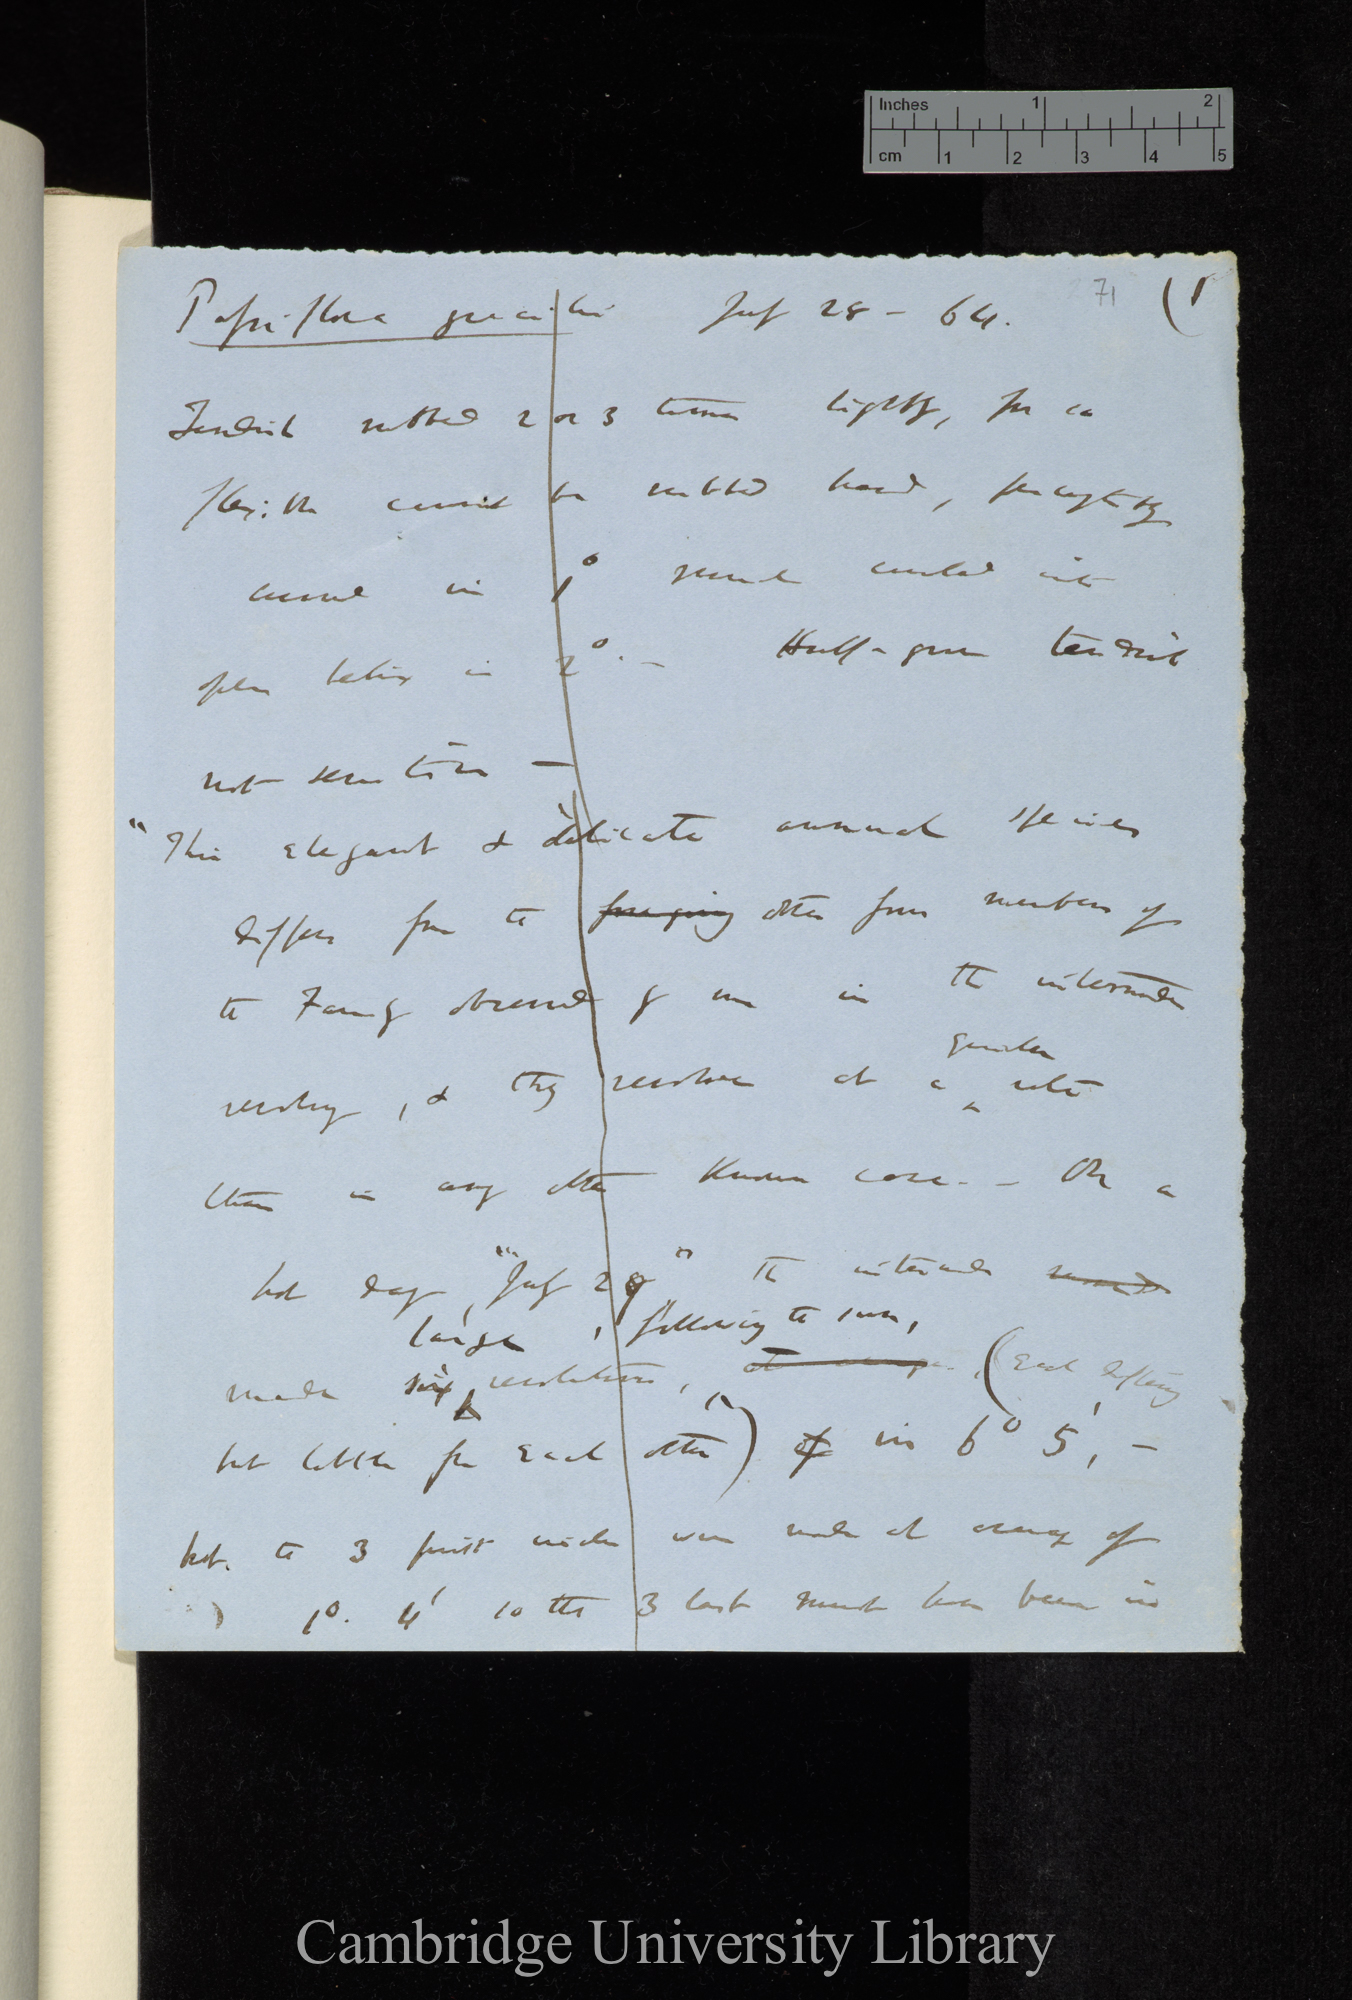 Inches 1 2
cm 1 2 3 4 5
71 (1
Passiflora gracilis July 28 - 64.
Tendril rubbed 2 or 3 times lightly, for so
flexible cannot be rubbed hard, perceptibly
curved in 1° curled into
open helix in 2°. — Half-grown tendril
not sensitive —
"This elegant & delicate annual species
differs from the foregoing other members of
the Family observed by me in the internodes
revolving, & they revolve at a quicker rate
than in any other known case. — On a
hot day, "July 29" the internode
large, following the sun,
made six revolutions, at average (each differing
but little from each other) of in 6° 5', —
but the 3 first circles were made at average of
1°. 4' so the 3 last must have been in
Cambridge University Library